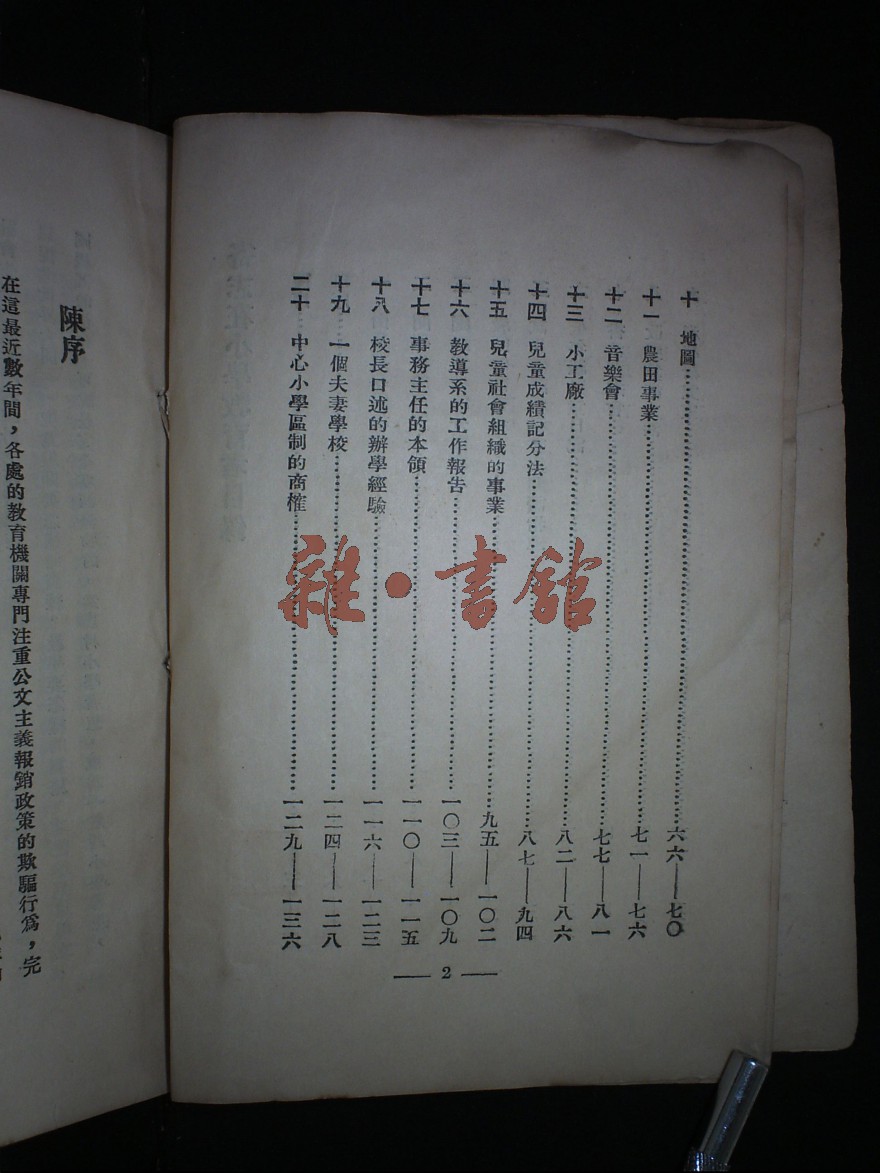 十 地圖……六六——七〇
十一 農田事業……七一——七六
十二 音樂會……七七——八一
十三 小工廠……八二——八六
十四 兒童成績記分法……八七——九四
十五 兒童社會組織的事業……九五——一〇二
十六 教導系的工作報告……一〇三——一〇九
十七 事務主任的本領……一一〇——一一五
十八 校長口述的辦學經驗……一一六——一二三
十九 一個夫妻學校……一二四——一二八
二十 中心小學區制的商榷……一二九——一三六
— 2 —
陳序
在這最近數年間，各處的教育機關專門注重公文主義報銷政策的欺騙行爲，完
雜·書館